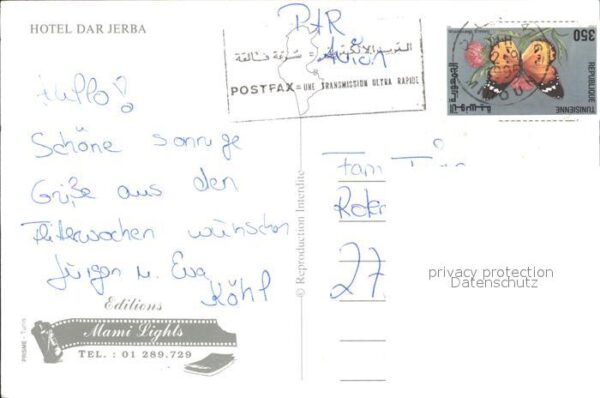 HOTEL DAR JERBA
PAR
Avion
البريد الإلكتروني = سرعة فائقة
POSTFAX = UNE TRANSMISSION ULTRA RAPIDE
350
REPUBLIQUE TUNISIENNE
الجمهورية التونسية
Hallo!
Schöne sonnige
Grüße aus den
Flitterwochen wünschen
Jürgen u. Eva
Köhl
Fam
27
© Reproduction Interdite
privacy protection
Datenschutz
Editions
Mami Lights
TEL. : 01 289.729
PRISME - Tunis